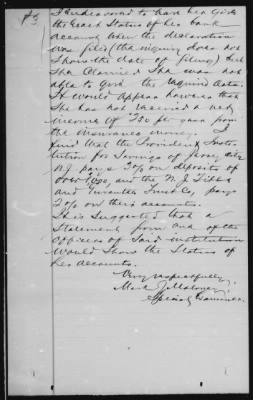 I endeavored to have her give
the exact status of her bank
account when the declaration
was filed (the inquiry does not
show the date of filing) but
she claimed she was not
able to give the required data.
It would appear however that
she has not received a net
income of 250 per year from
the insurance money. I
find that the Provident Insti-
tution for Savings of Jersey City
N.J. pays % on deposits of
over and the N.J. Title
and Guarantee Trust Co. pays
2% on their accounts.
It is suggested that a
statement from one of the
officers of said institution
would show the status of
her accounts.
Very respectfully,
Mark J. Maloney
Special Examiner.